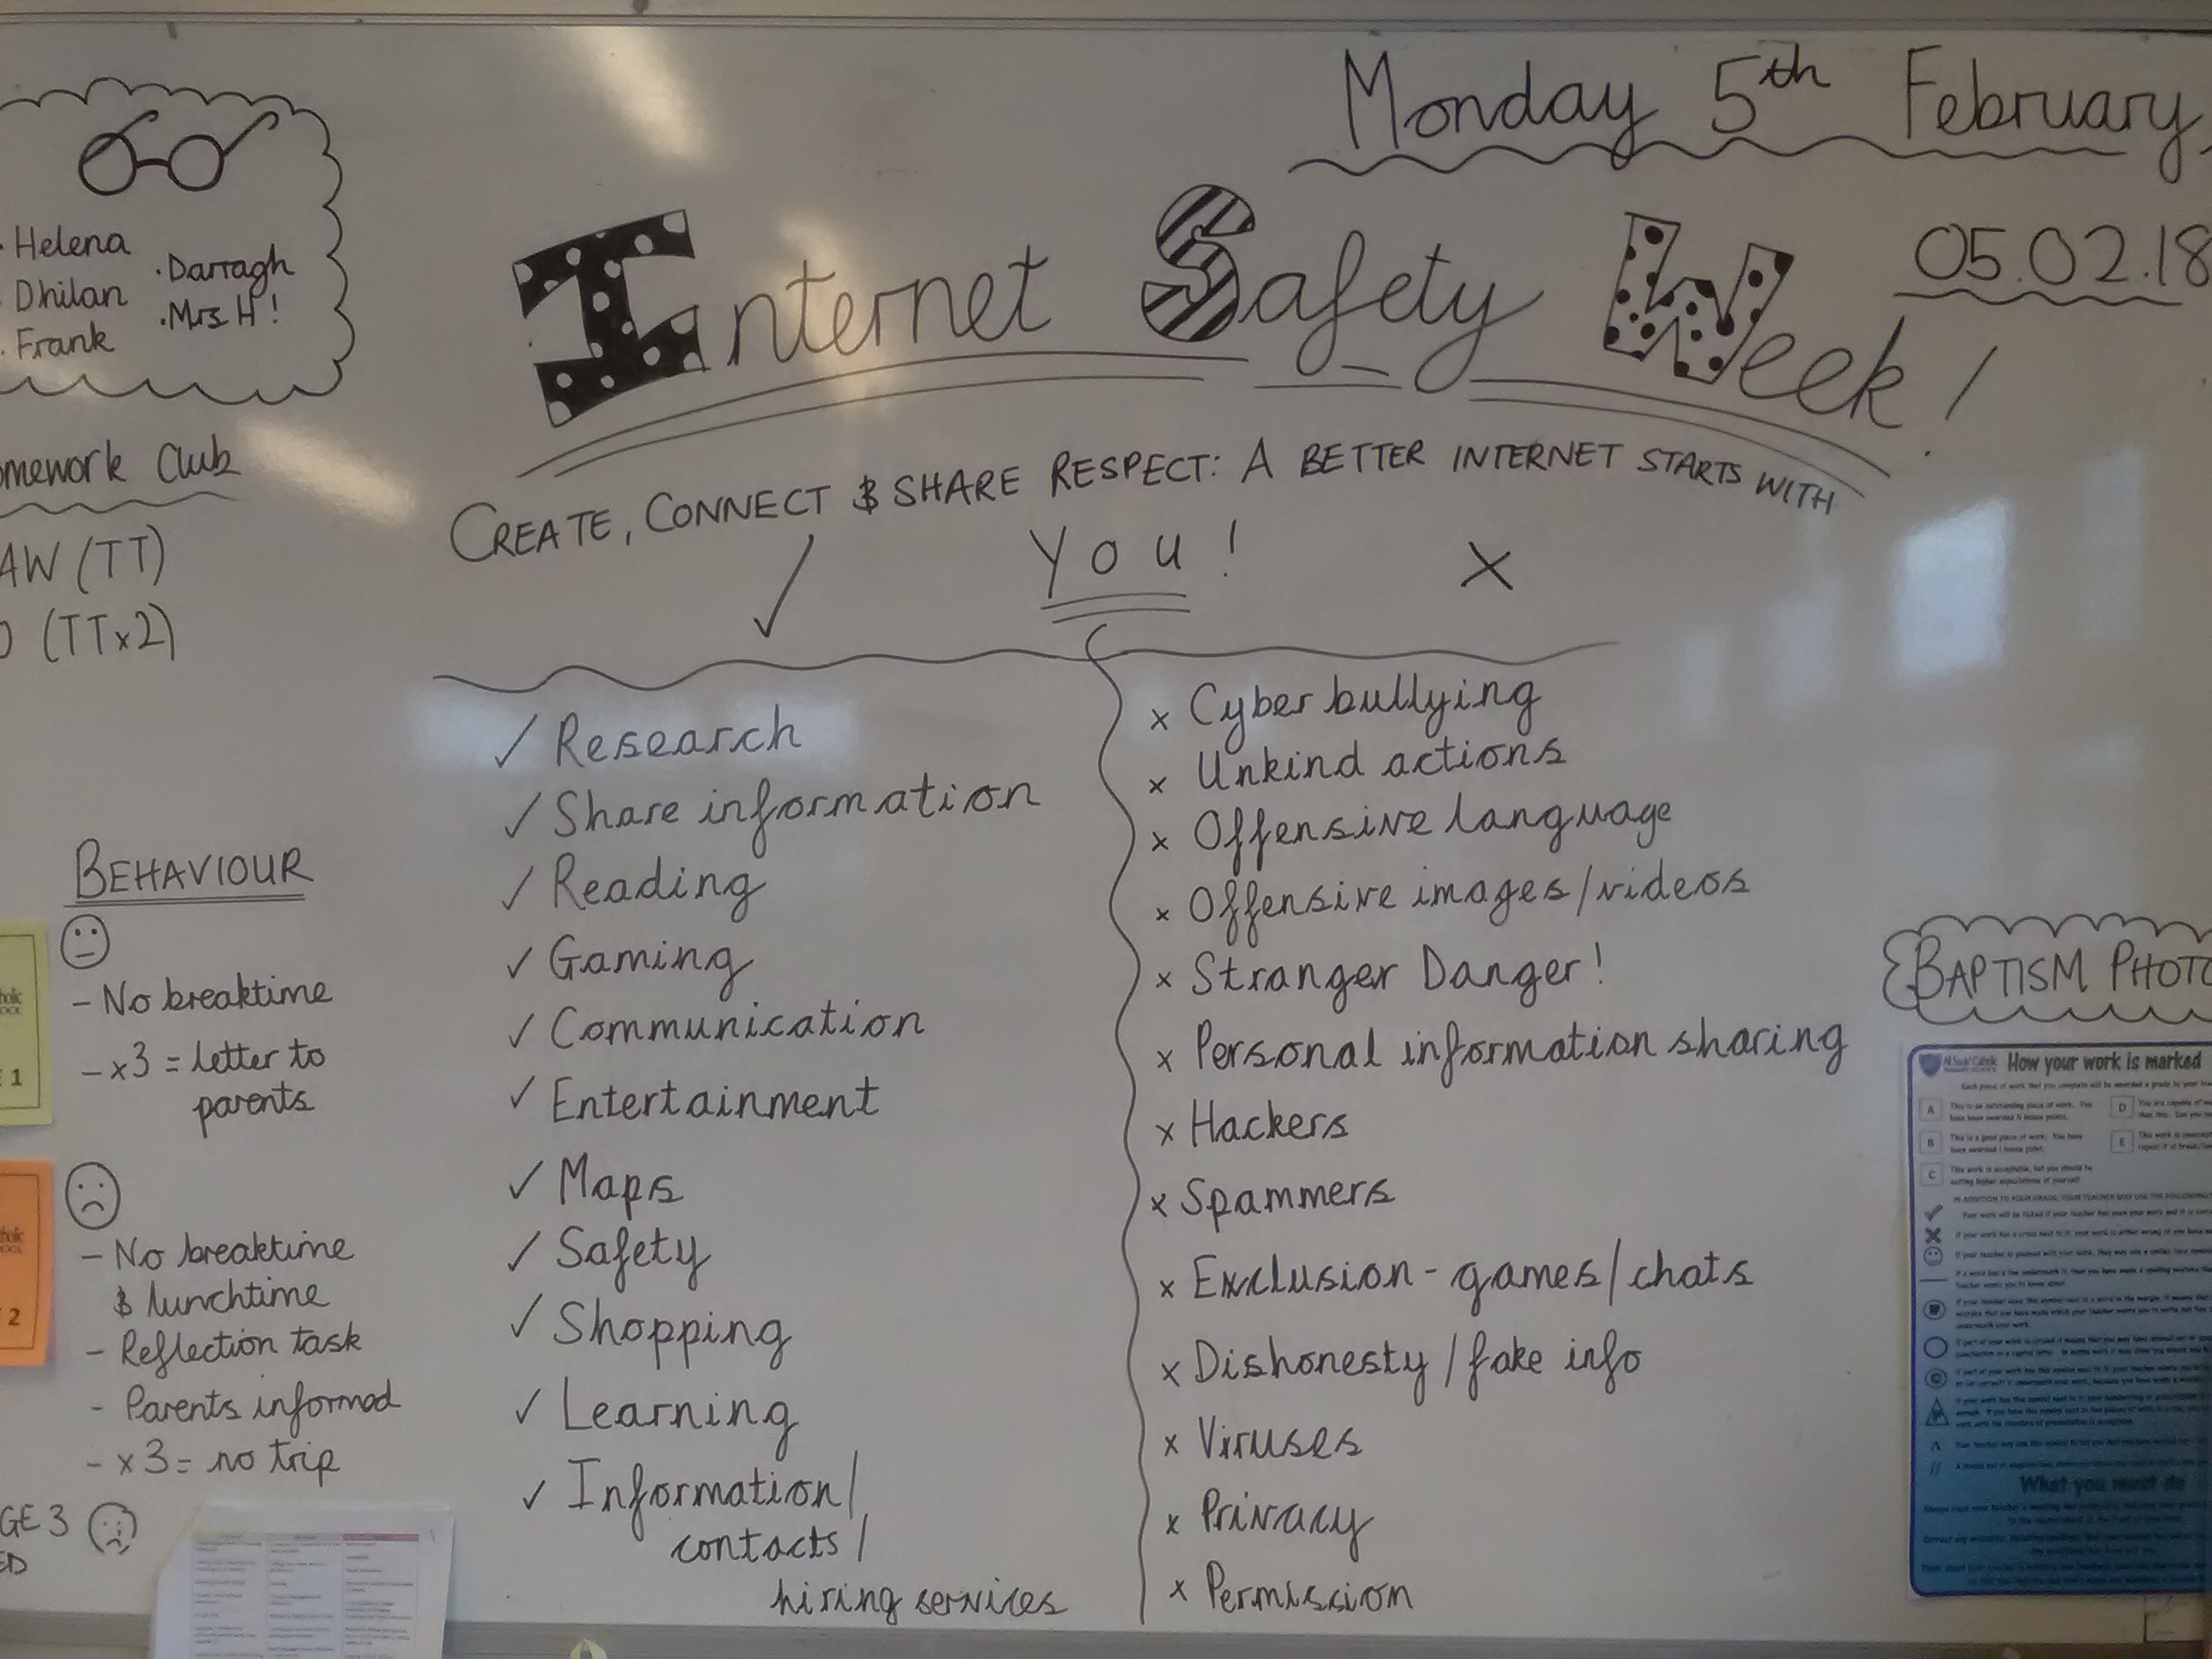 Monday 5th February,
05.02.18
Internet Safety Week!
CREATE, CONNECT & SHARE RESPECT: A BETTER INTERNET STARTS WITH
YOU!
✓
✓ Research
✓ Share information
✓ Reading
✓ Gaming
✓ Communication
✓ Entertainment
✓ Maps
✓ Safety
✓ Shopping
✓ Learning
✓ Information/
contacts/
hiring services
x
x Cyber bullying
x Unkind actions
x Offensive language
x Offensive images/videos
x Stranger Danger!
x Personal information sharing
x Hackers
x Spammers
x Exclusion - games/chats
x Dishonesty/fake info
x Viruses
x Privacy
x Permission
· Helena
· Dhilan
· Frank
· Darragh
· Mrs H!
omework Club
AW (TT)
(TTx2)
BEHAVIOUR
- No breaktime
- x3 = letter to
parents
- No breaktime
& lunchtime
- Reflection task
- Parents informed
- x3 = no trip
GE 3
ED
1
2
BAPTISM PHOTO
How your work is marked
A
B
C
D
E
What you must do